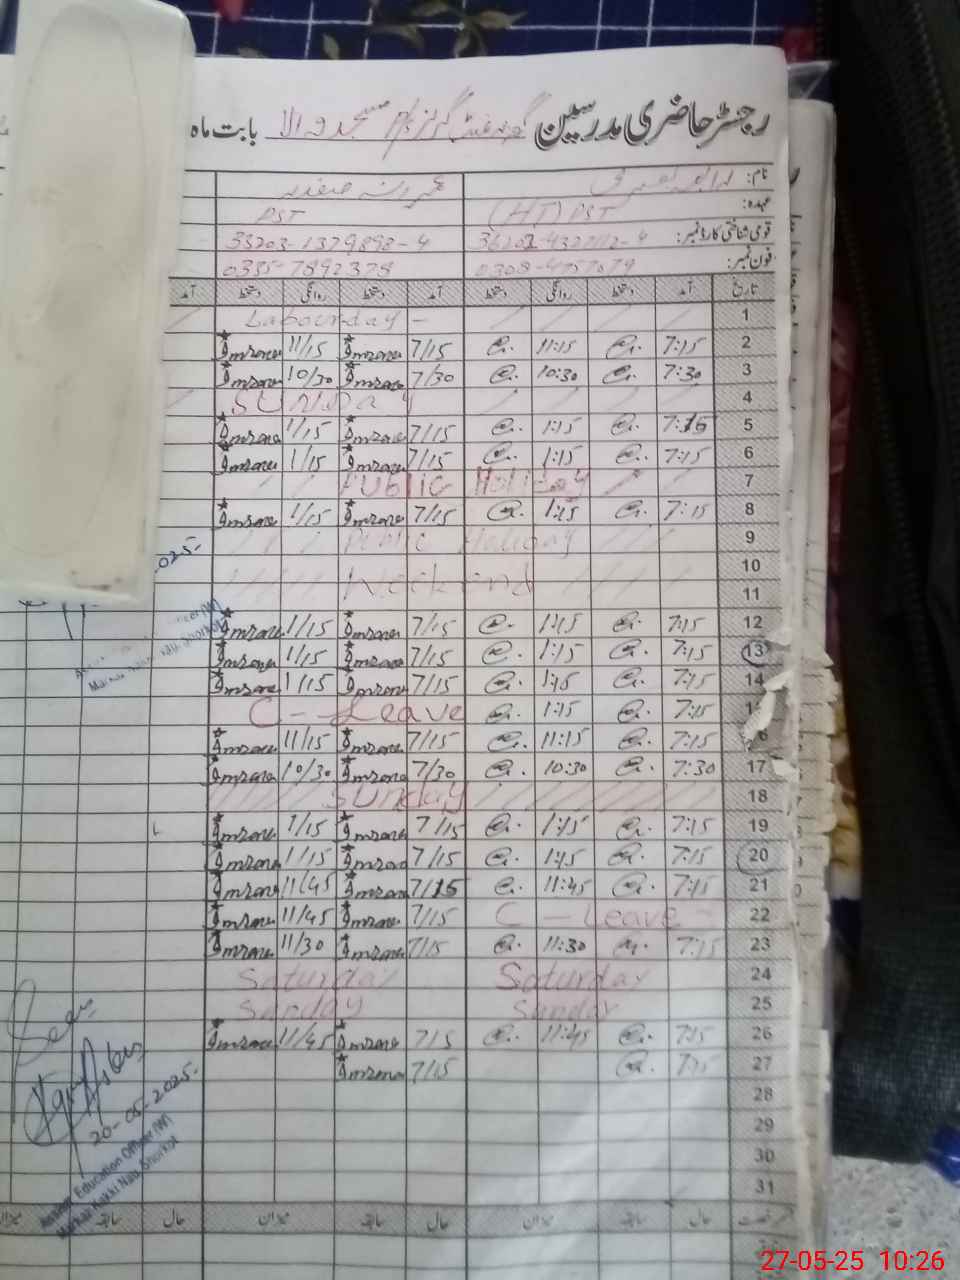 رجسٹر حاضری مدرسین گورنمنٹ گرلز مسجد والا بابت ماہ
نام:
عہدہ: PST (HT) PST
قومی شناختی کارڈ نمبر: 33203-1379898-4
فون نمبر: 0335-7892378 0308-4757079
تاریخ آمد دستخط روانگی دستخط آمد دستخط روانگی دستخط آمد
1 Labour day -
2 7:15 @. 11:15 @. 7/15 Imrana 11/15 Imrana
3 7:30 @. 10:30 @. 7/30 Imrana 10/30 Imrana
4 SUNDay
5 7:15 @. 1:15 @. 7/15 Imrana 1/15 Imrana
6 7:15 @. 1:15 @. 7/15 Imrana 1/15 Imrana
7 Public Holiday
8 7:15 @. 1:15 @. 7/15 Imrana 1/15 Imrana
9 Public Holiday
10
11 Weekend
12 7:15 @. 1:15 @. 7/15 Imrana 1/15 Imrana
13 7:15 @. 1:15 @. 7/15 Imrana 1/15 Imrana
14 7:15 @. 1:15 @. 7/15 Imrana 1/15 Imrana
15 7:15 @. 1:15 @. C - Leave
16 7:15 @. 11:15 @. 7/15 Imrana 11/15 Imrana
17 7:30 @. 10:30 @. 7/30 Imrana 10/30 Imrana
18 Sunday
19 7:15 @. 1:15 @. 7/15 Imrana 1/15 Imrana
20 7:15 @. 1:15 @. 7/15 Imrana 1/15 Imrana
21 7:15 @. 11:45 @. 7/15 Imrana 11/45 Imrana
22 C - Leave - 7/15 Imrana 11/45 Imrana
23 7:15 @. 11:30 @. 7/15 Imrana 11/30 Imrana
24 Saturday Saturday
25 Sunday Sunday
26 7:15 @. 11:45 @. 7/15 Imrana 11/45 Imrana
27 7:15 @. 7/15 Imrana
28
29
30
31
رخصت حال سابقہ میزان حال سابقہ میزان حال سابقہ میزان
2025-
Seen
20-05-2025.
Education Officer (W)
Markaz Nau, Shorkot
27-05-25 10:26